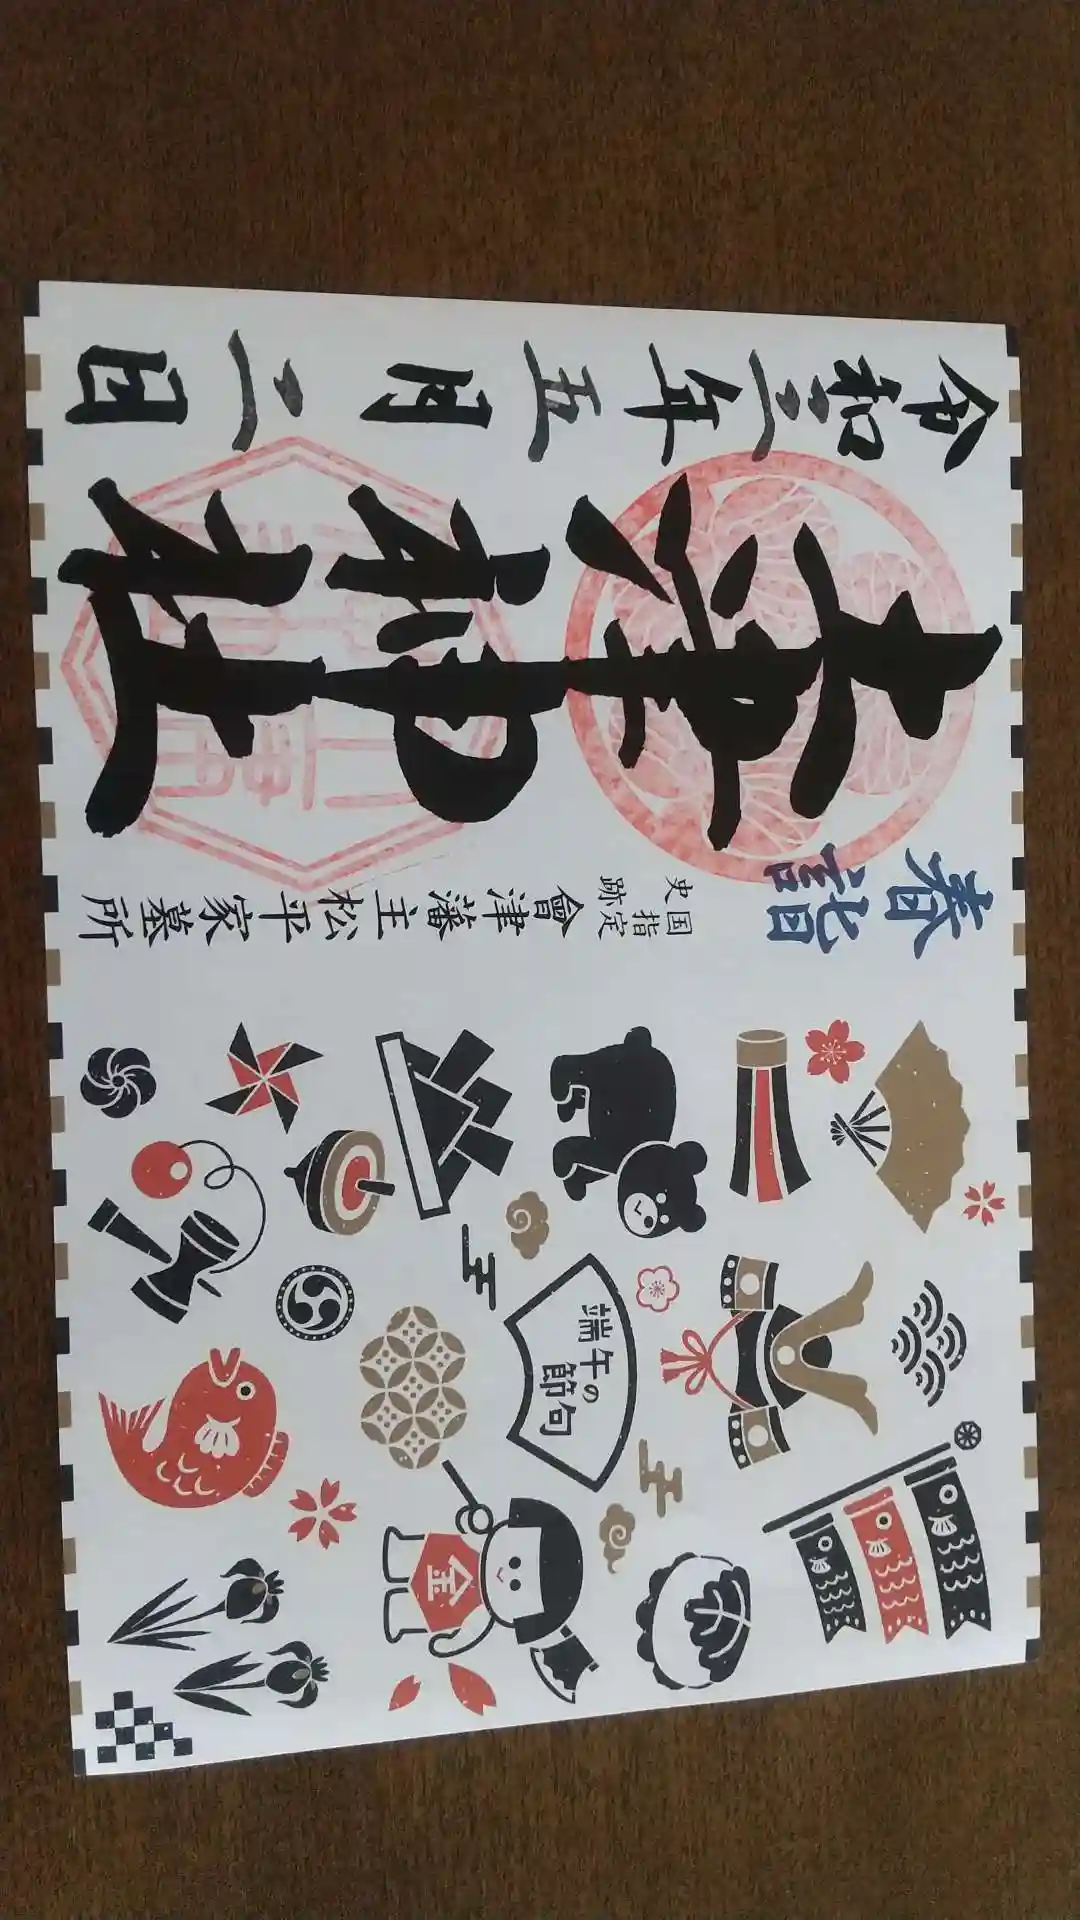 端午の
節句
金
春詣
国指定
史跡
會津藩主松平家墓所
土津神社
令和三年五月二日